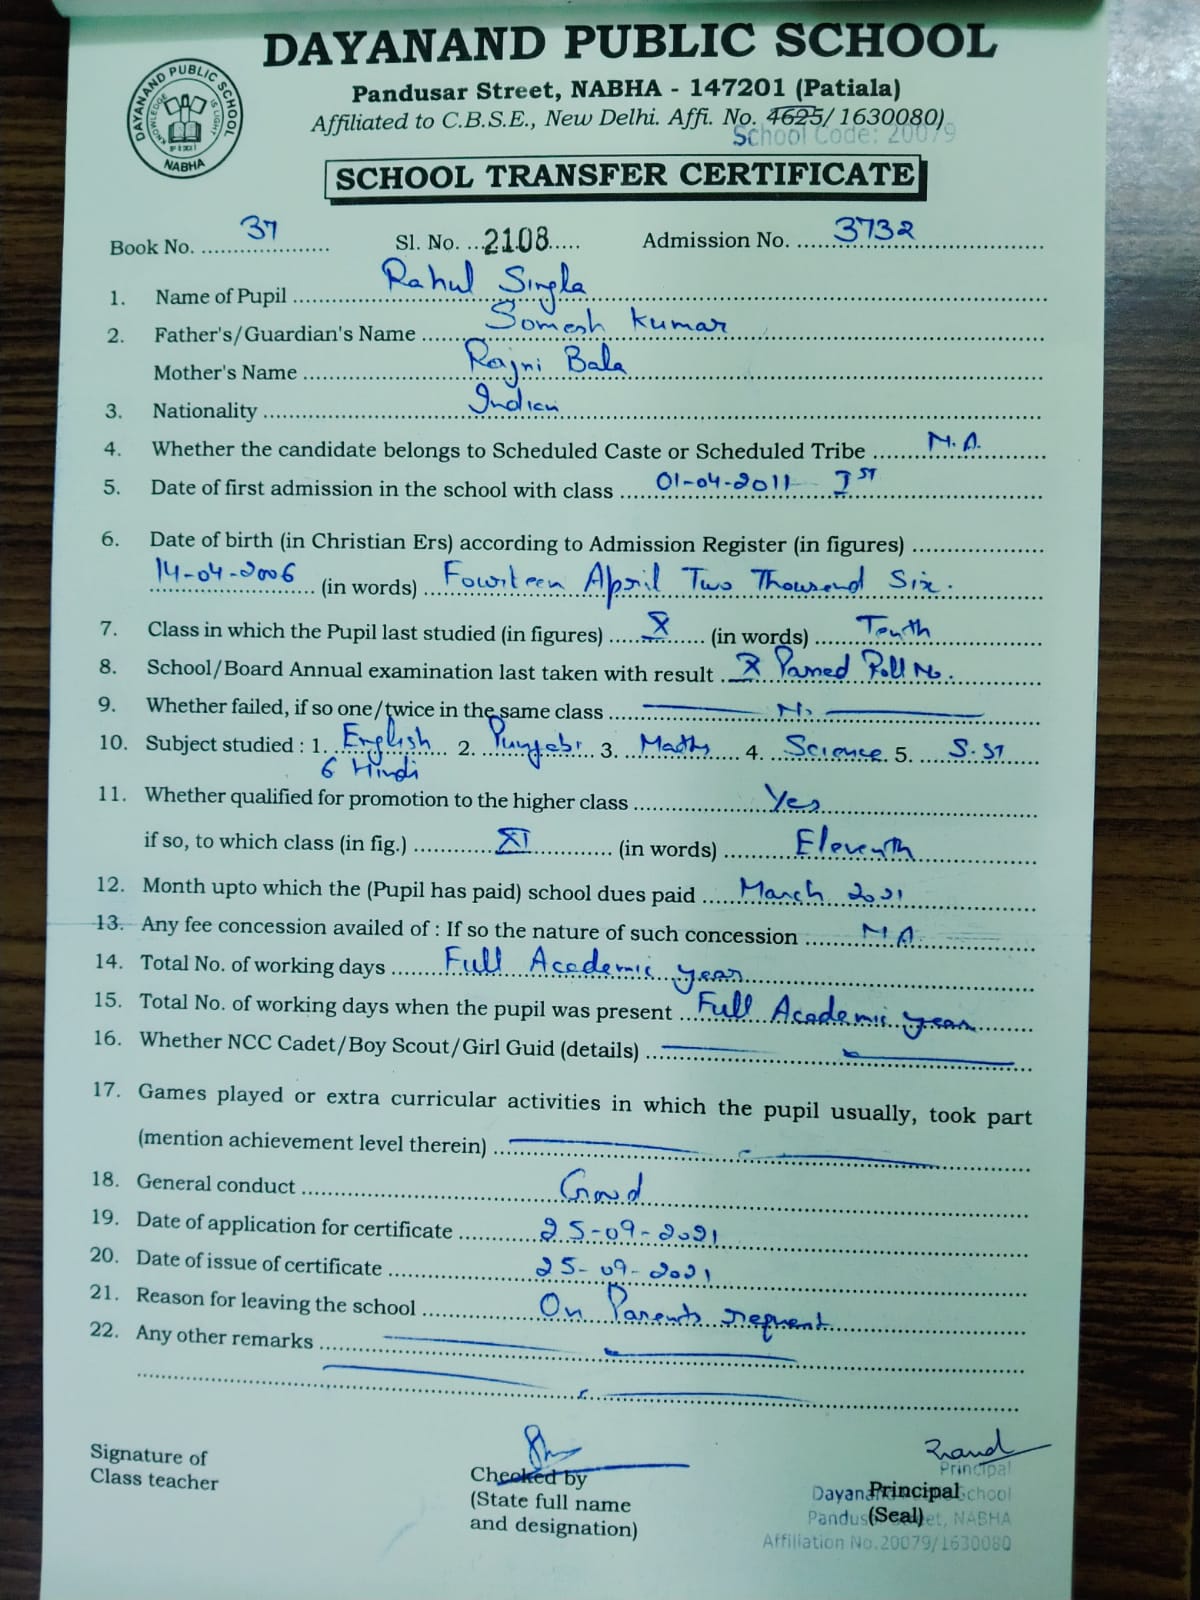 DAYANAND PUBLIC SCHOOL
DAYANAND PUBLIC SCHOOL
KNOWLEDGE IS LIGHT
NABHA
Pandusar Street, NABHA - 147201 (Patiala)
Affiliated to C.B.S.E., New Delhi. Affi. No. 4625/ 1630080)
School Code: 20079
SCHOOL TRANSFER CERTIFICATE
Book No. 37 Sl. No. 2108 Admission No. 3732
1. Name of Pupil Rahul Singla
2. Father's/Guardian's Name Somesh Kumar
Mother's Name Rajni Bala
3. Nationality Indian
4. Whether the candidate belongs to Scheduled Caste or Scheduled Tribe N.A.
5. Date of first admission in the school with class 01-04-2011 IST
6. Date of birth (in Christian Ers) according to Admission Register (in figures)
14-04-2006 (in words) Fourteen April Two Thousend Six.
7. Class in which the Pupil last studied (in figures) X (in words) Tenth
8. School/Board Annual examination last taken with result X Passed Roll No.
9. Whether failed, if so one/twice in the same class No
10. Subject studied : 1. English 2. Punjabi 3. Maths 4. Science 5. S.St
6 Hindi
11. Whether qualified for promotion to the higher class Yes
if so, to which class (in fig.) XI (in words) Eleventh
12. Month upto which the (Pupil has paid) school dues paid March 2021
13. Any fee concession availed of : If so the nature of such concession N.A.
14. Total No. of working days Full Academic year
15. Total No. of working days when the pupil was present Full Academic year
16. Whether NCC Cadet/Boy Scout/Girl Guid (details)
17. Games played or extra curricular activities in which the pupil usually, took part
(mention achievement level therein)
18. General conduct Good
19. Date of application for certificate 25-09-2021
20. Date of issue of certificate 25-09-2021
21. Reason for leaving the school On Parents request
22. Any other remarks
Signature of
Class teacher
Checked by
(State full name
and designation)
Principal
Principal
(Seal)
Dayanand School
Pandusar Street, NABHA
Affiliation No.20079/1630080